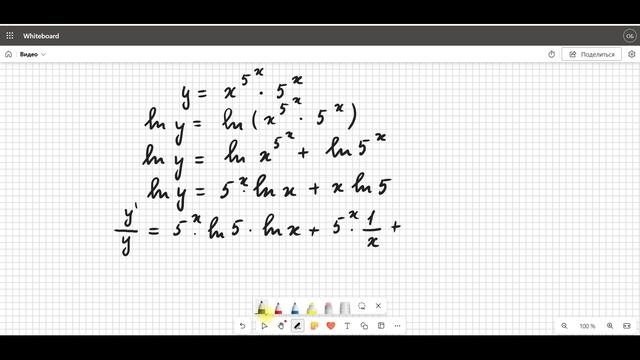 Whiteboard
ОБ
Видео
Поделиться
y = x^5^x · 5^x
ln y = ln (x^5^x · 5^x)
ln y = ln x^5^x + ln 5^x
ln y = 5^x · ln x + x ln 5
y'/y = 5^x · ln 5 · ln x + 5^x · 1/x +
100 %